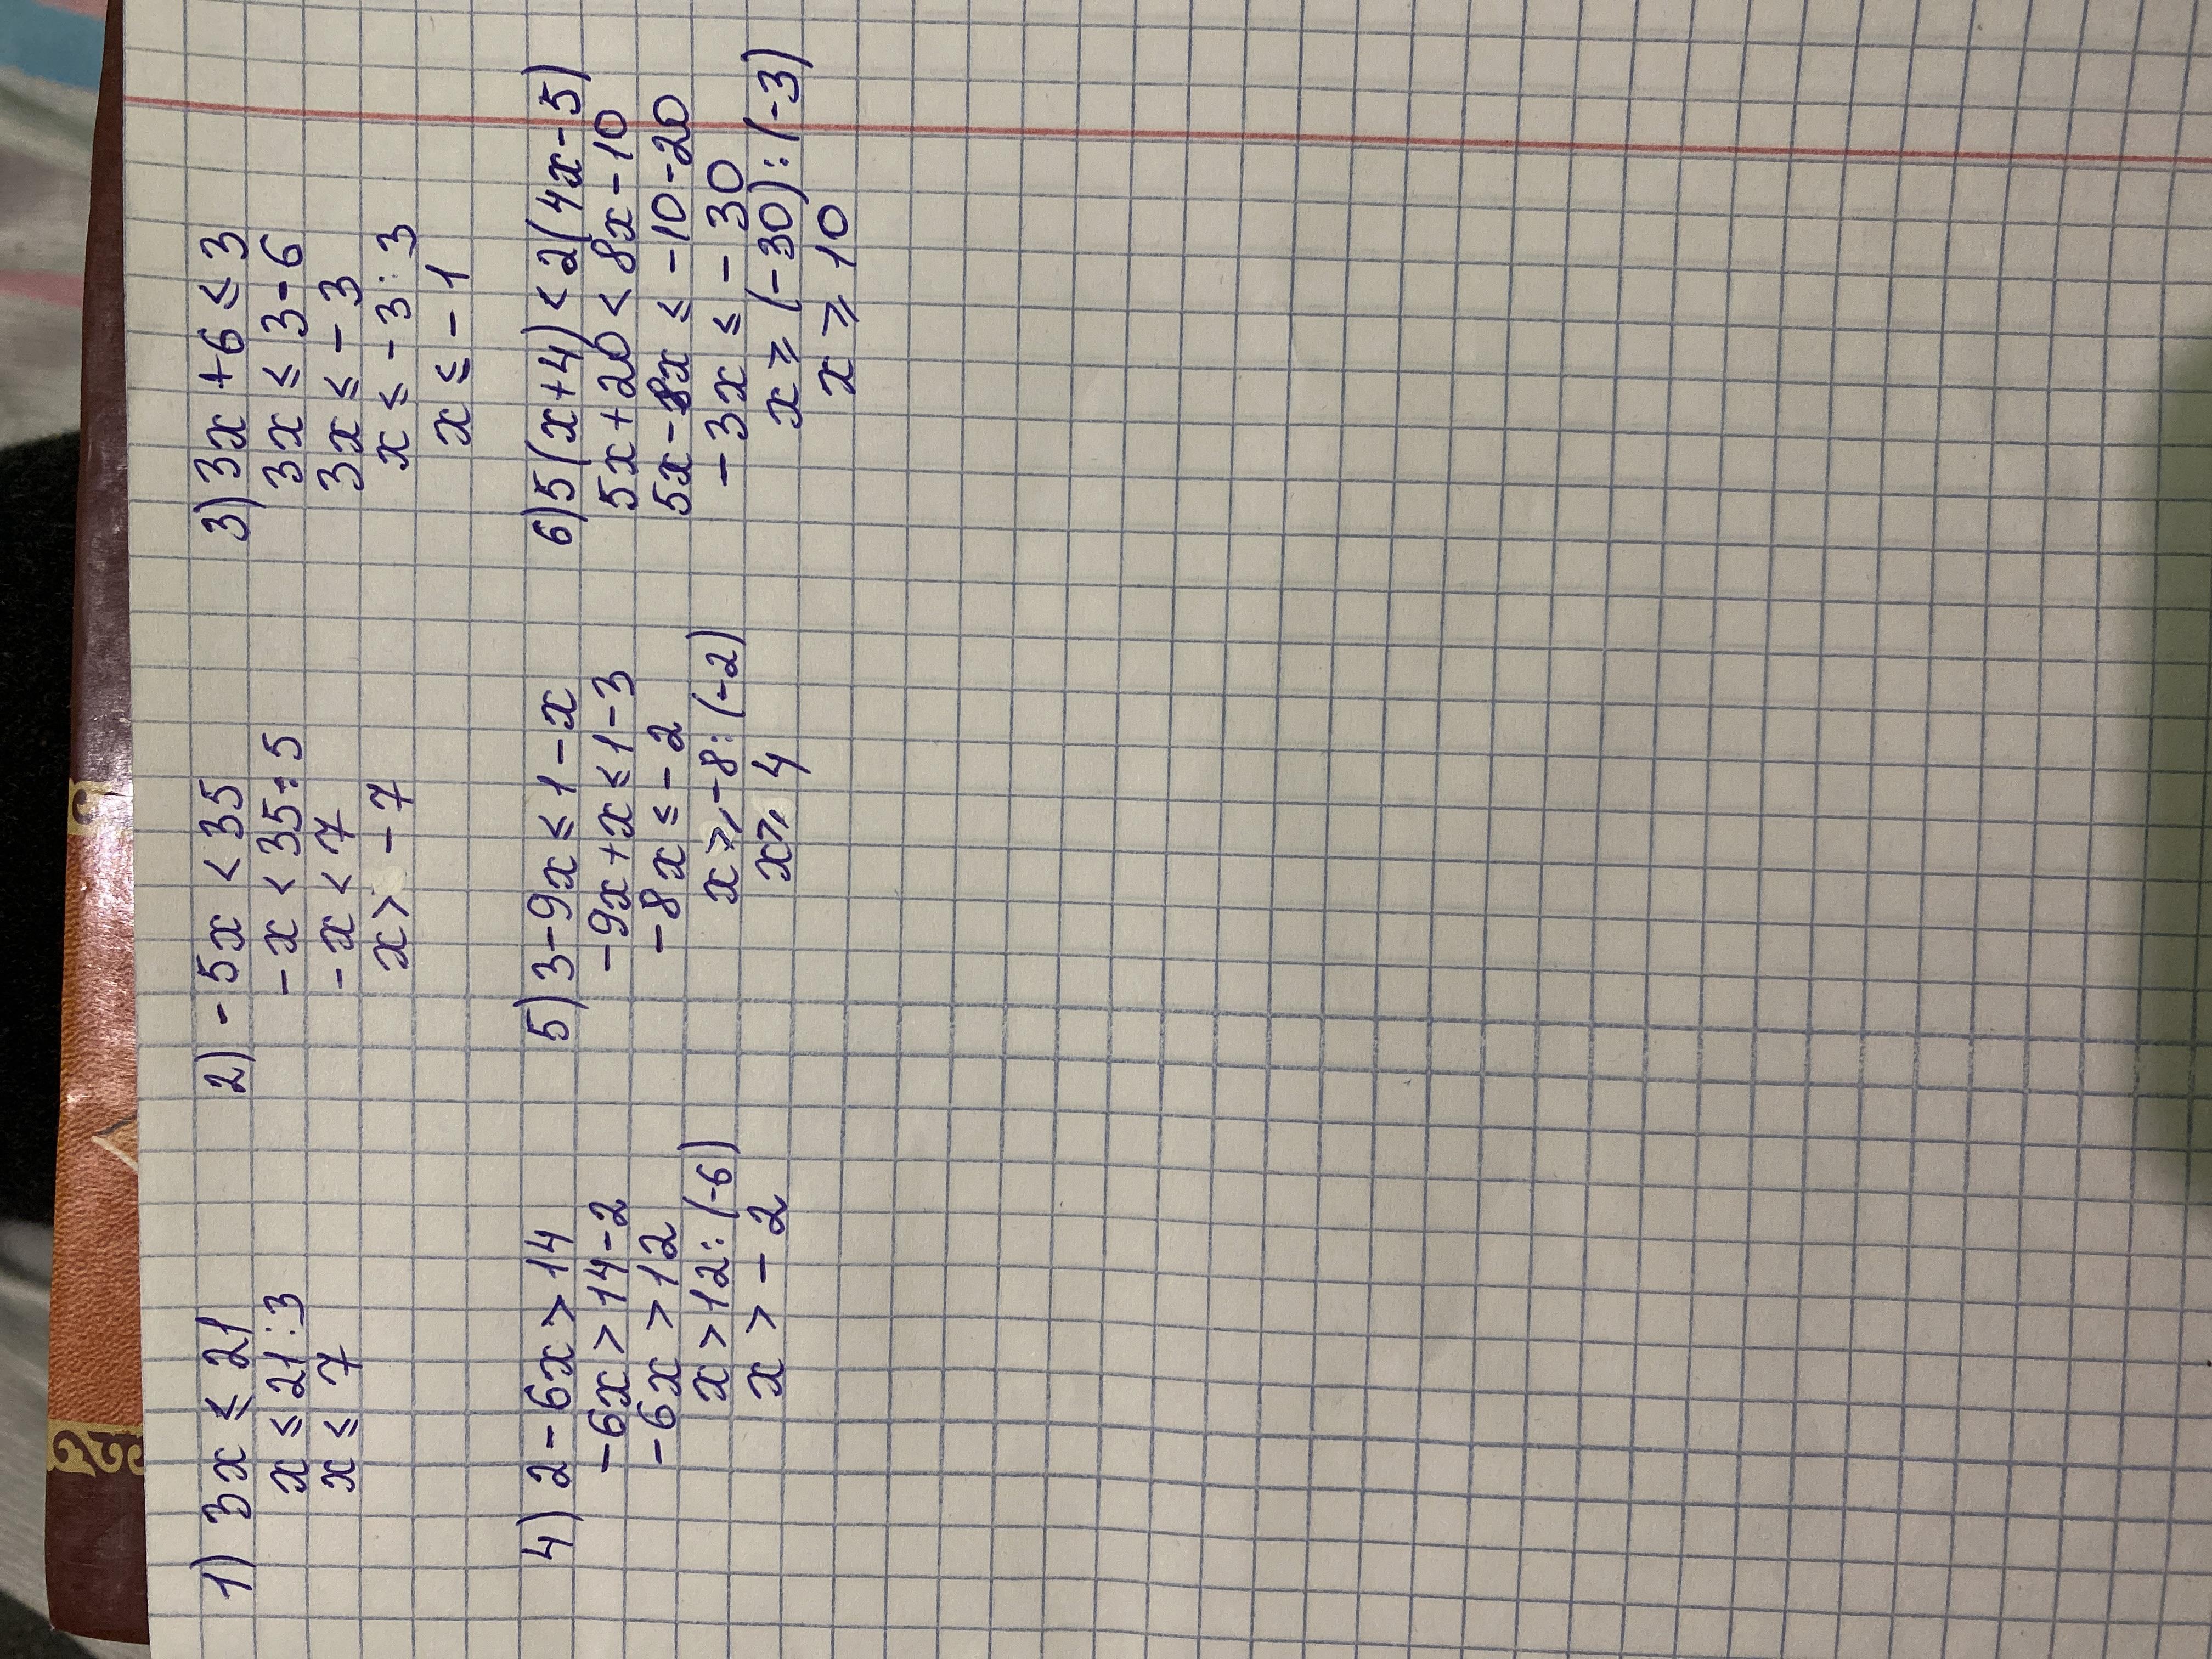 1) 3x ≤ 21
x ≤ 21:3
x ≤ 7
2) -5x < 35
-x < 35:5
-x < 7
x > -7
3) 3x+6 ≤ 3
3x ≤ 3-6
3x ≤ -3
x ≤ -3:3
x ≤ -1
4) 2-6x > 14
-6x > 14-2
-6x > 12
x > 12:(-6)
x > -2
5) 3-9x ≤ 1-x
-9x+x ≤ 1-3
-8x ≤ -2
x ⩾ -8:(-2)
x ⩾ 4
6) 5(x+4) < 2(4x-5)
5x+20 < 8x-10
5x-8x ≤ -10-20
-3x ≤ -30
x ⩾ (-30):(-3)
x ⩾ 10